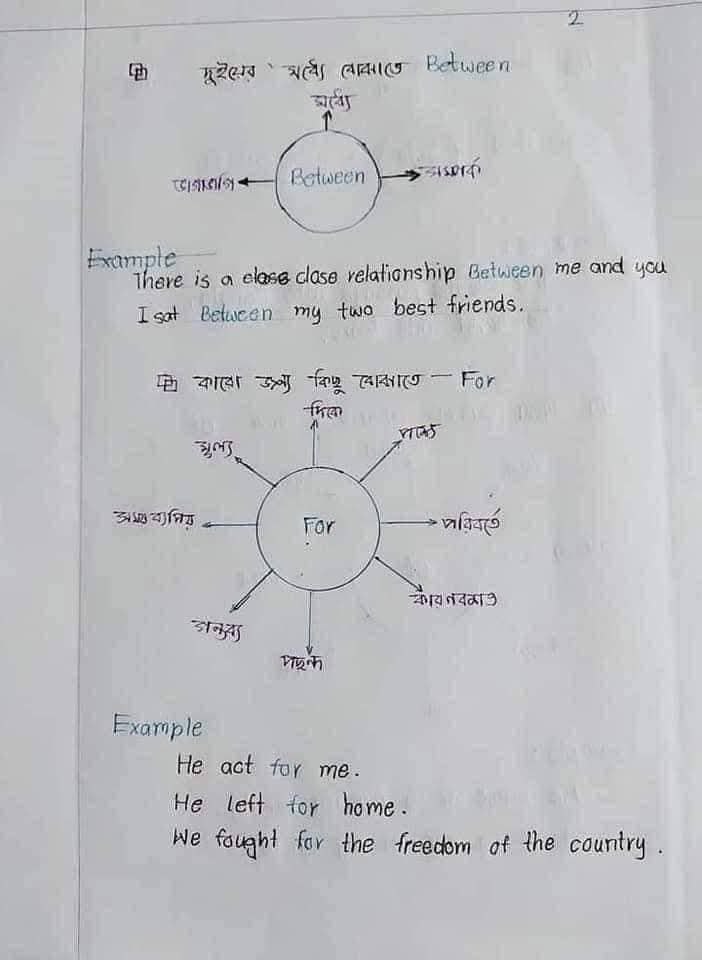 2
দুইয়ের মধ্যে বোঝাতে Between
মধ্যে
ভাগাভাগি Between সম্পর্ক
Example
There is a close close relationship Between me and you
I sat Between my two best friends.
কারো জন্য কিছু বোঝাতে – For
দিকে
মূল্য পক্ষে
For পরিবর্তে
কারণবশত
গন্তব্য
পছন্দ
Example
He act for me.
He left for home.
We fought for the freedom of the country.